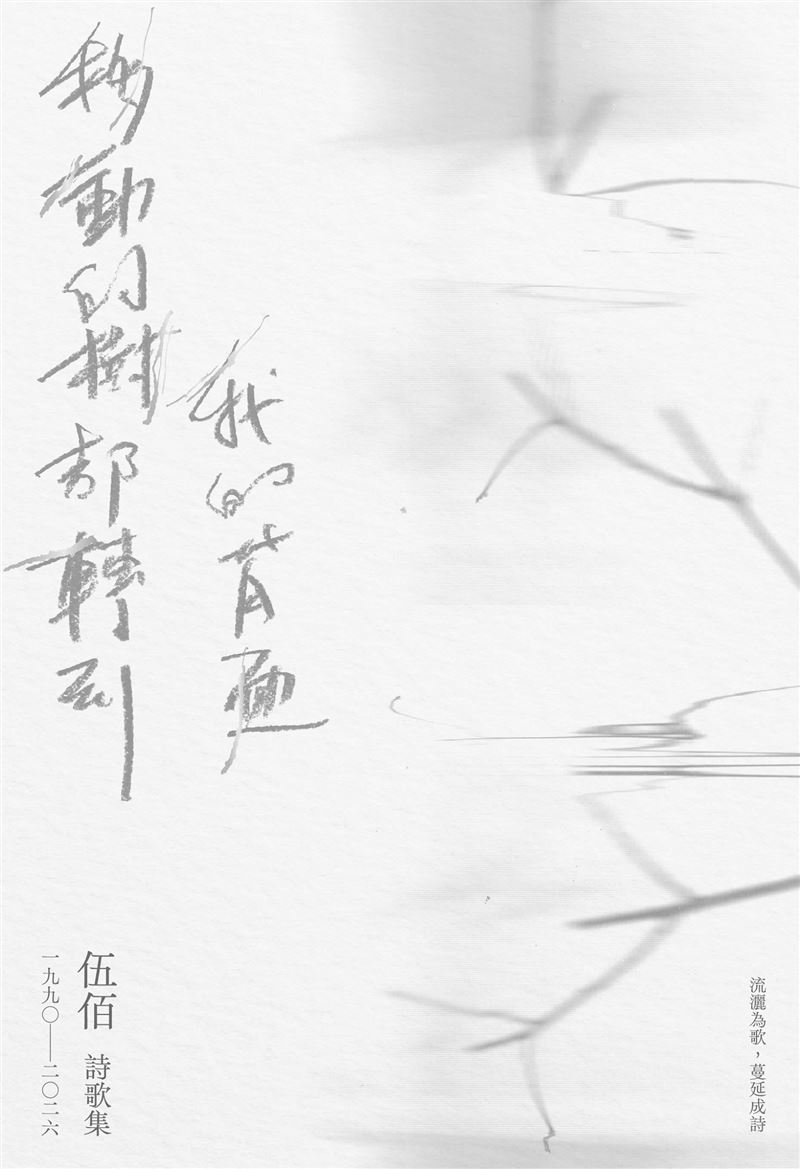 移動的樹都轉到
我的背面
伍佰 詩歌集
一九九〇——二〇二六
流灑為歌，蔓延成詩